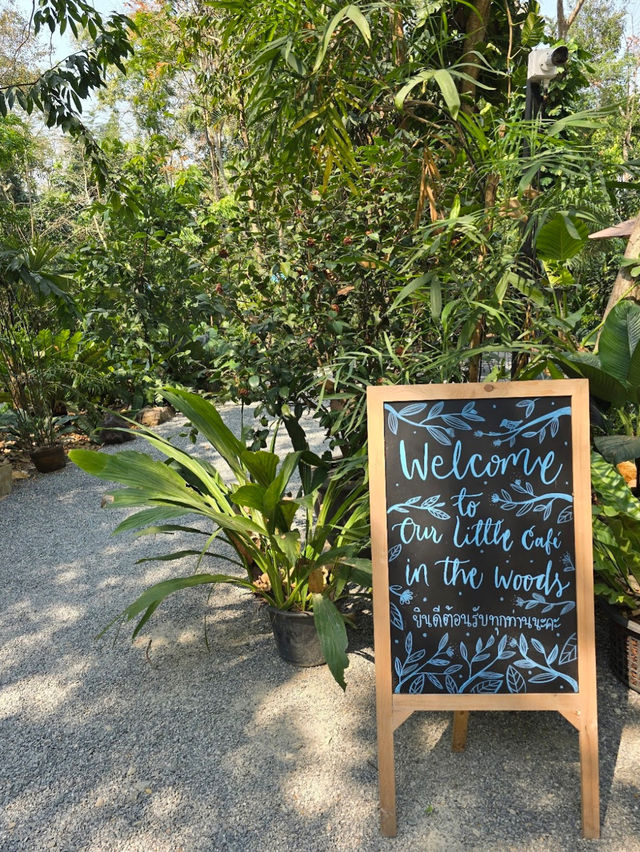 Welcome
to
Our Little Café
in the woods
ยินดีต้อนรับทุกท่านนะคะ